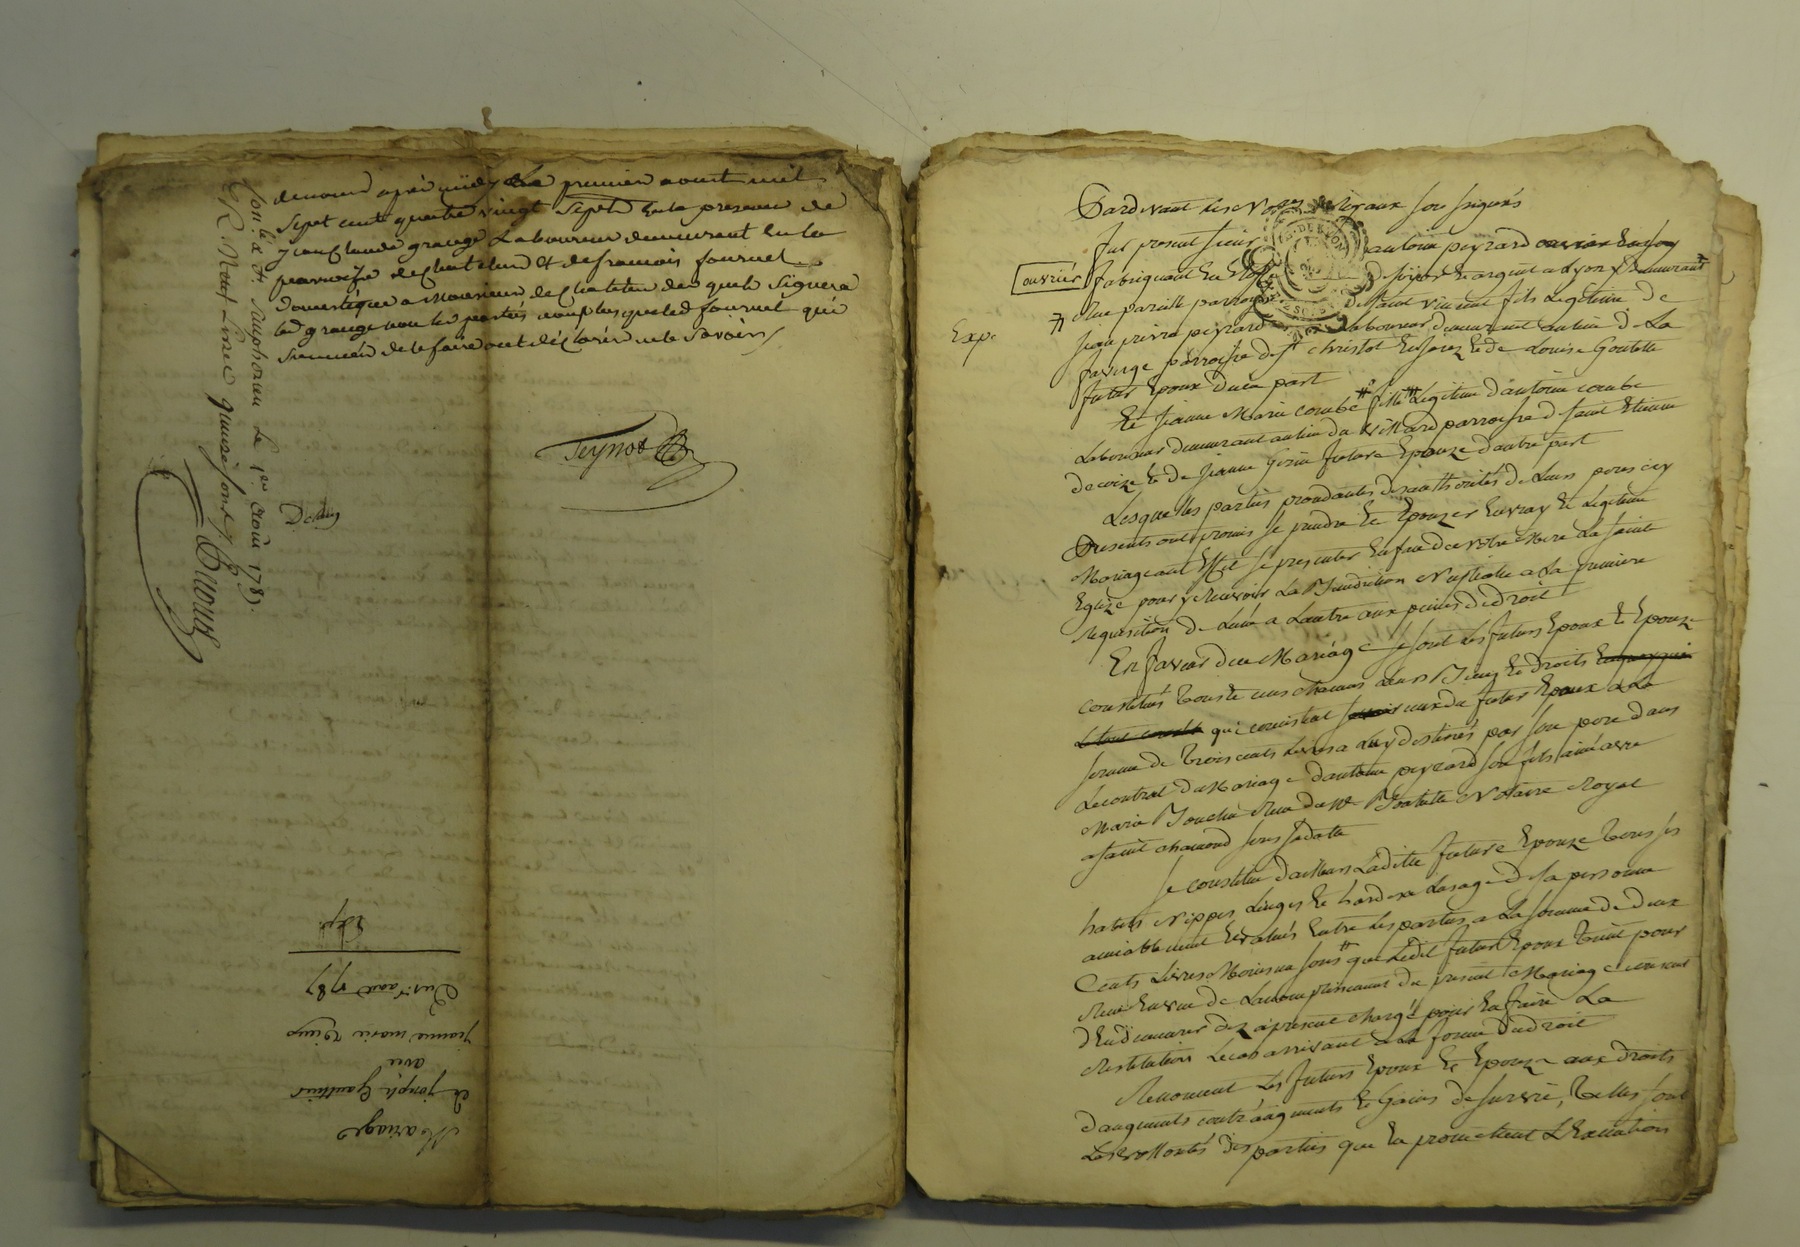 demeure après midy le premier aoust mil
sept cent quatre vingt sept en la presence de
jean Claude grange Laboureur demeurant en la
parroisse de chatelus & de francois fournel
domestique a Monsieur de Chatelus des quels signera
led grange non les parties non plus que led fournel qui
de le faire ont déclarés ne le sçavoir
Teynot
Delay
Conllé a St. Simphorien Le 1er aout 1787.
R. Neuf Livres quinze sous
Exp.
Du 1er aout 1787
jeanne marie
avec
de joseph Gaultier
Mariage
Pardevant les Nores Royaux sousignés
fut present sieur antoine peyrard
ouvrier fabriquant en étoffes de soye or & argent a Lyon y demeurant
Rue parroisse de saint vincent fils Legitime de
Exp. jean pierre peyrard Laboureur demeurant au lieu de La
favurge parroisse de St christot en jarez & de Louise Goutelle
futur Epoux d'une part
Et jeanne Marie combe fille Legitime d'antoine combe
Laboureur demeurant au lieu du villard parroisse de saint Etienne
de coize & de jeanne Gorin future Epouze d'autre part
Lesquelles parties procedantes des authorités de Leurs peres icy
Presents ont promis se prendre & Epouzer en vray & Legitime
Mariage a cet effet se presenter en face de notre Mere La sainte
Eglize pour y Recevoir La Benediction Nuptialle a La premiere
Requisition de L'une a L'autre aux peines de droit
En faveur du Mariage se sont les futurs Epoux & Epouze
constitués tous & uns chacuns leurs Biens & droits
qui consistent ceux du futur Epoux a La
somme de trois cents Livres a Luy destinés par son pere dans
Le contrat de Mariage d'antoine peyrard son fils ainé avec
Marie Bouchu Reçu de Me Notaire Royal
a saint chamond sous sa datte
Se constitue d'ailleurs Laditte future Epouze tous ses
habits Nippes Linges & hardes a L'usage de sa personne
amiablement Evalués entre les parties a La somme de deux
Cents Livres Moins un sous que Ledit futur Epoux tient pour
Reçue en vue de L'accomplissement du present Mariage consent
d'En demeurer dez apresent chargé pour en faire La
Restitution Le cas arrivant a La forme du droit
Renoncent Les futurs Epoux & Epouze aux droits
d'augments contr'augments & Gains de survie, telles sont
Les volontés des parties que En promettent L'Execution